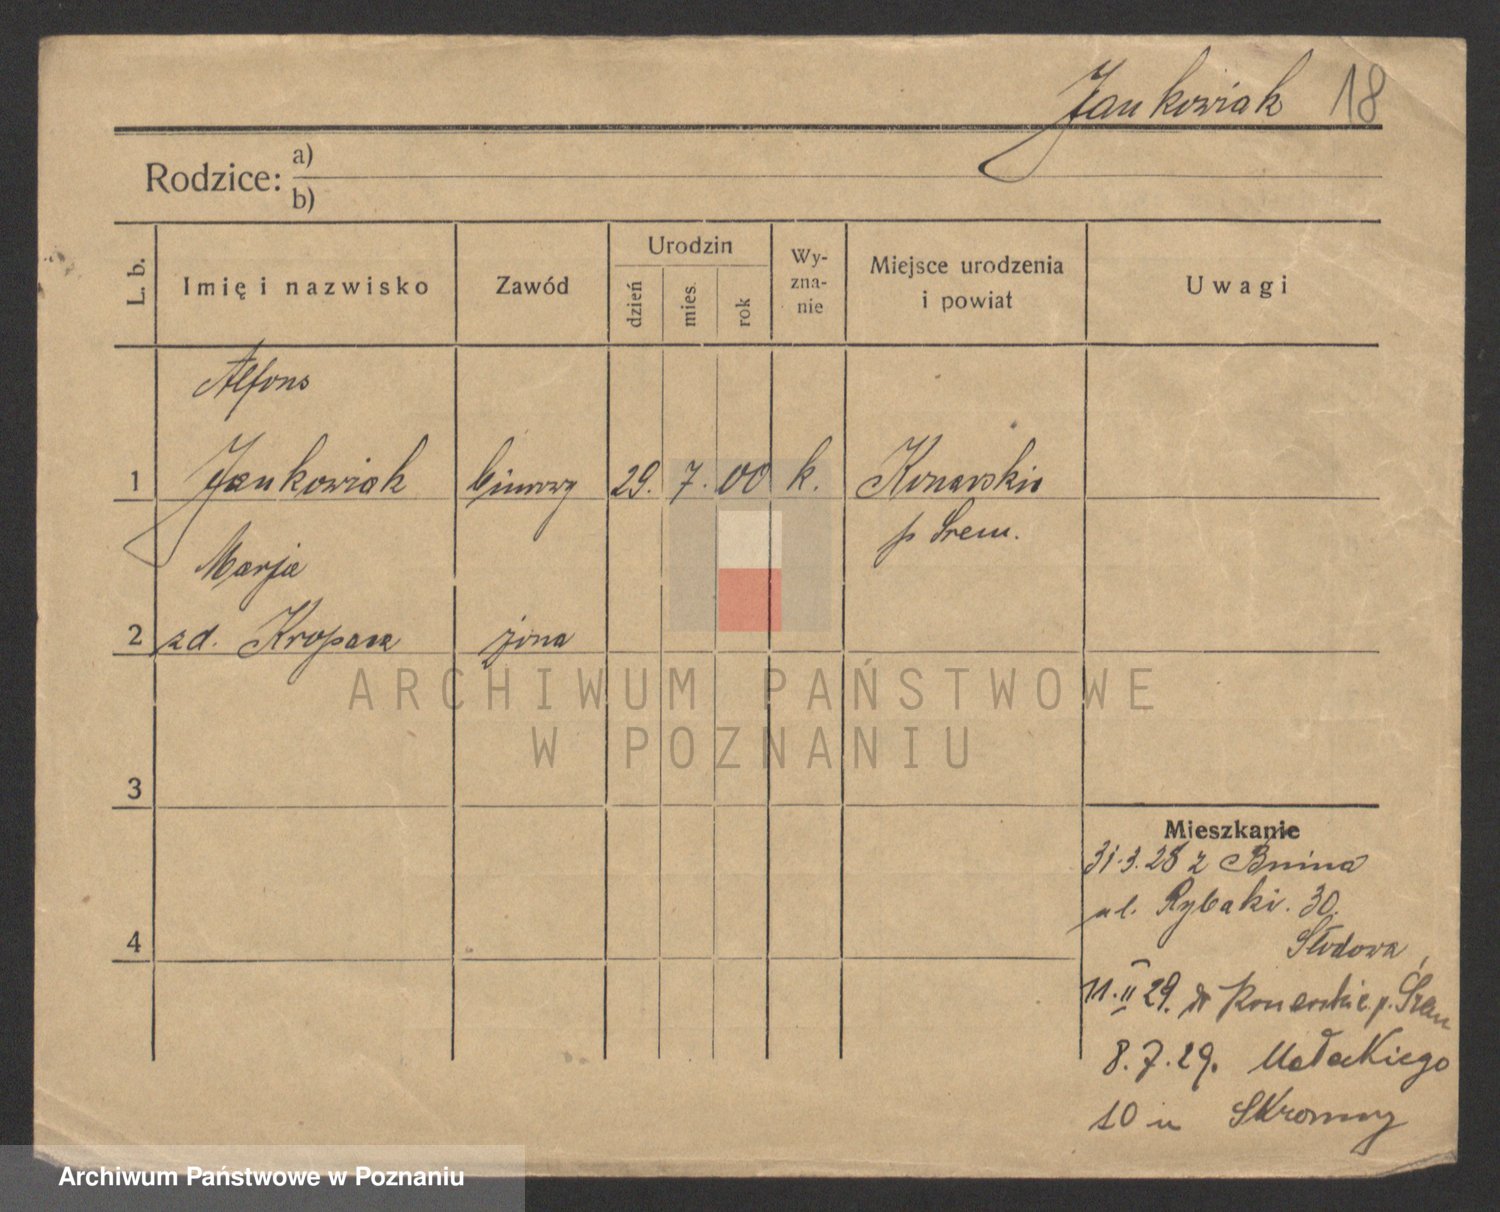 Jankowiak 18
Rodzice: a)
b)
L. b.
Imię i nazwisko
Zawód
Urodzin
dzień
mies.
rok
Wy-
zna-
nie
Miejsce urodzenia
i powiat
Uwagi
Alfons
1 Jankowiak 29. 7. 00 k. Konarskie
p Śrem.
Marja
2 zd. żona
3
4
Mieszkanie
31.3.28 z Bnina
ul. Rybaki. 30.
Słodowa
11.II 29. Konarskie p. Śrem
8.7.29. Małeckiego
10 u Skromny
ARCHIWUM PAŃSTWOWE
W POZNANIU
Archiwum Państwowe w Poznaniu